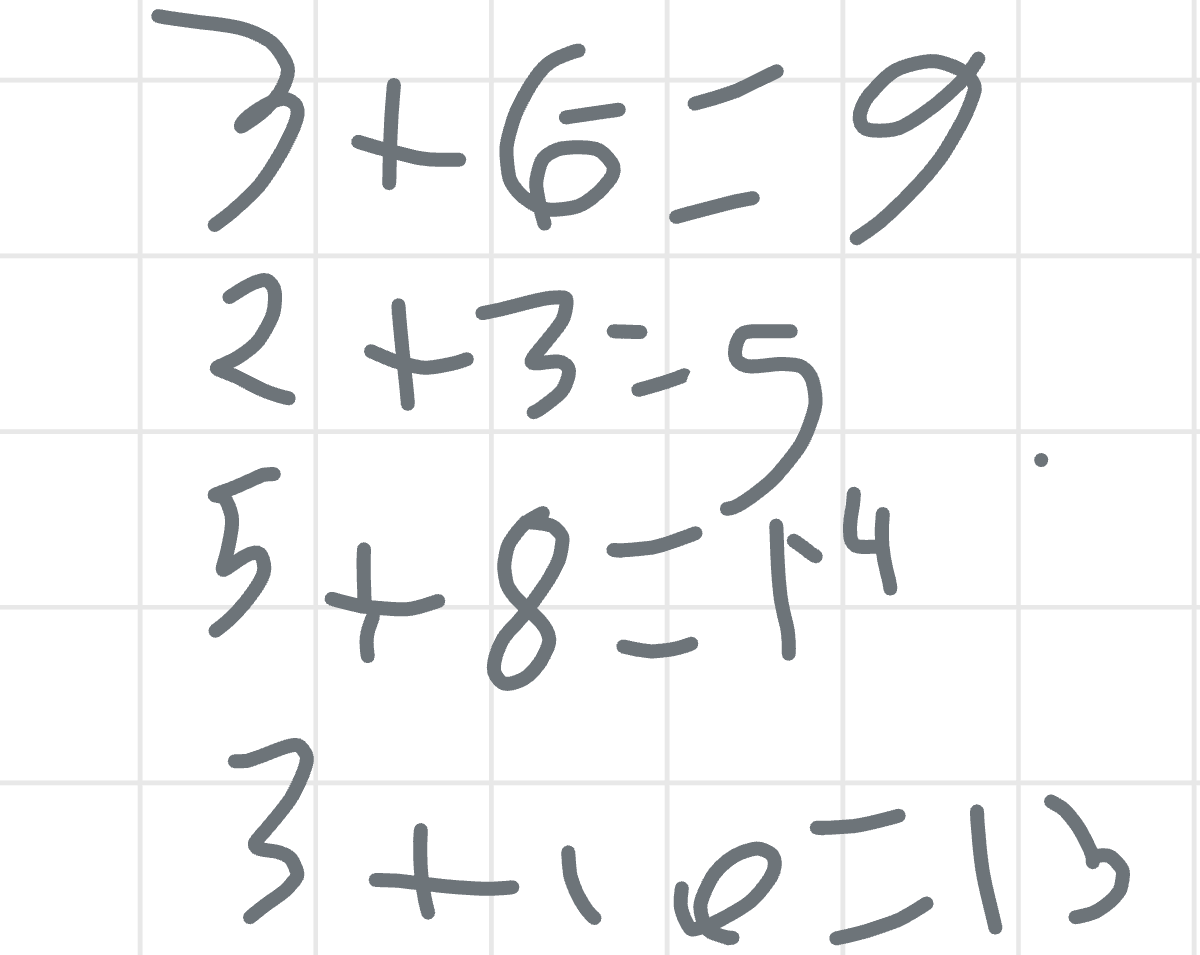 3+6=9
2+3=5
5+8=14
3+10=13